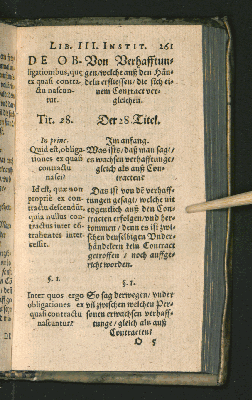 LIB. III. INSTIT. 261
DE OB-
ligationibus, quę
ex quasi contra-
ctu nascun-
tur.
Von Verhafftun-
gen/welche auß den Hän-
deln erfliessen/ die sich ei-
nem Contract ver-
gleichen.
Tit. 28.
Der 28. Titel.
In princ.
Quid est, obliga-
tiones ex quasi
contractu
nasci?
Im anfang.
Was ists/ daß man sag/
es wachsen verhafftunge/
gleich als auß Con-
tracten?
Id est, quæ non
propriè ex con-
tractu descendũt,
quia nullus con-
tractus inter cõ-
trahentes inter-
cessit.
Das ist von dẽ verhaff-
tungen gesagt/ welche nit
eygentlich auß den Con-
tracten erfolgen/ und her-
kommen/ denn es ist zwi-
schen denselbigen Under-
händelern kein Contract
getroffen / noch auffge-
richt worden.
§. 1.
Inter quos ergo
obligationes ex
quasi contractu
nascuntur?
§. 1.
So sag derwegen/ under
vil zwischen welchen Per-
sonen erwachsen verhaff-
tunge/ gleich als auß
Contracten?
O 5